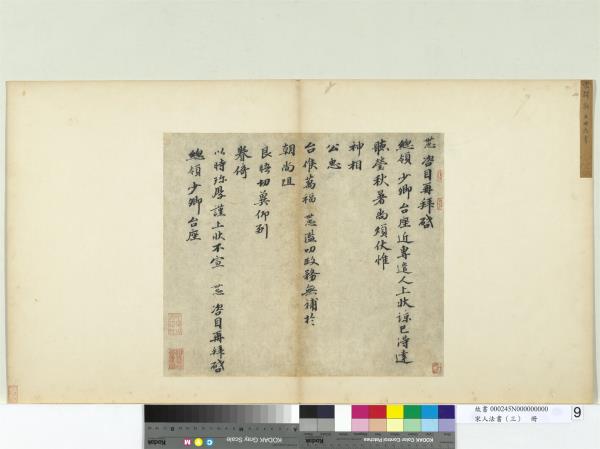 咨目再拜啓
總領少卿台座近專遣人上狀諒已得達
聽瑩秋暑尚煩伏惟
神相
公忠
台候萬福 濫叨政務無補於
朝尚阻
良晤切冀仰副
眷倚
以時珍厚謹上狀不宣 咨目再拜啓
總領少卿台座
KODAK Gray Scale
KODAK Color Control Patches
故書 000245N000000000
宋人法書（三） 冊
9